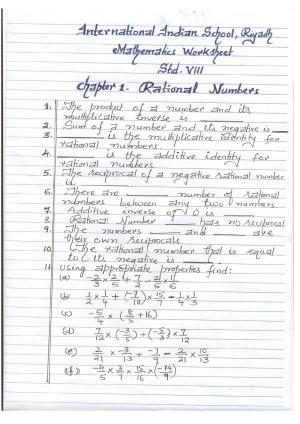 International Indian School, Riyadh
Mathematics Worksheet
Std. VIII
Chapter 1. Rational Numbers
1. The product of a number and its
multiplicative inverse is
2. Sum of a number and its negative is
3. is the multiplicative identity for
rational numbers.
4. is the additive identity for
rational numbers
5. The reciprocal of a negative rational number
is
6. There are number of rational
numbers between any two numbers
7. Additive inverse of 0 is
8. Rational Number has no reciprocal
9. The numbers and are
their own reciprocals
10. The rational number that is equal
to its negative is
11. Using appropriate properties find:
(a) -2/3 × 2/5 + 7/2 - 2/5 × 1/6
(b) 1/2 × 1/4 + (-7/18) × 15/7 - 1/4 × 1/3
(c) -5/4 × (8/5 + 16)
(d) 7/12 × (-3/5) + (-5/3) × 7/12
(e) 2/21 × -3/13 + -1/9 - 2/21 × 10/13
(f) -4/5 × 3/7 × 15/16 × (-14/9)